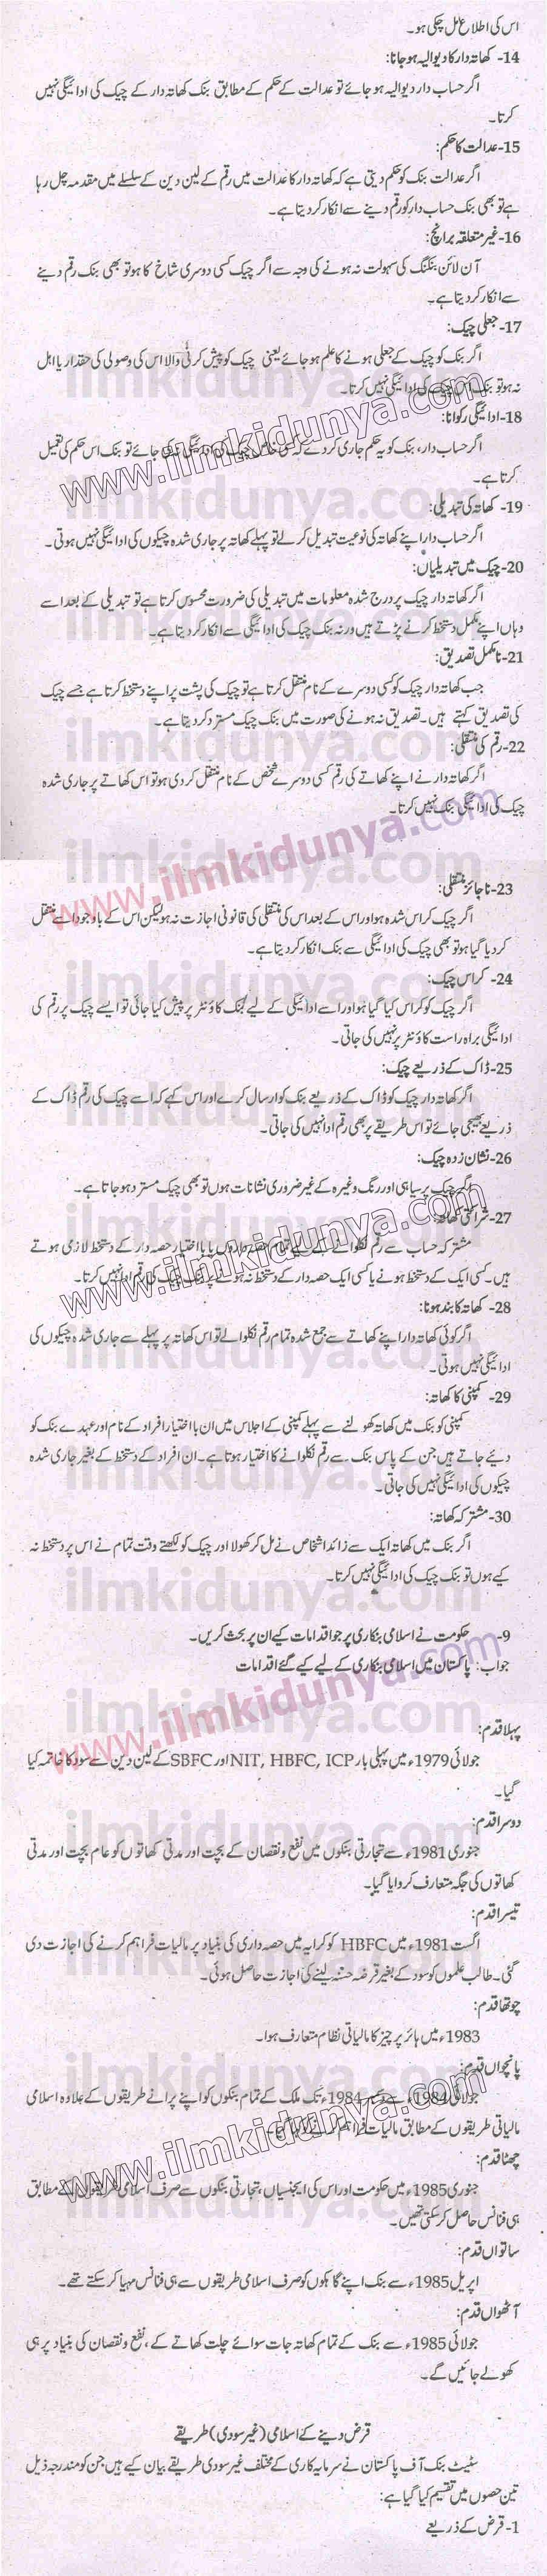 اس کی اطلاع مل چکی ہو۔
14- کھاتہ دار کا دیوالیہ ہو جانا:
اگر حساب دار دیوالیہ ہو جائے تو عدالت کے حکم کے مطابق بنک کھاتہ دار کے چیک کی ادائیگی نہیں
کرتا۔
15- عدالت کا حکم:
اگر عدالت بنک کو حکم دیتی ہے کہ کھاتہ دار کا عدالت میں رقم کے لین دین کے سلسلے میں مقدمہ چل رہا
ہے تو بھی بنک حساب دار کو رقم دینے سے انکار کر دیتا ہے۔
16- غیر متعلقہ برانچ:
آن لائن بنکنگ کی سہولت نہ ہونے کی وجہ سے اگر چیک کسی دوسری شاخ کا ہو تو بھی بنک رقم دینے
سے انکار کر دیتا ہے۔
17- جعلی چیک:
اگر بنک کو چیک کے جعلی ہونے کا علم ہو جائے یعنی چیک کو پیش کرنے والا اس کی وصولی کی حقدار یا اہل
نہ ہو تو بنک اس چیک کی ادائیگی نہیں کرتا۔
18- ادائیگی رکوانا:
اگر حساب دار، بنک کو یہ حکم جاری کر دے کہ جائے تو بنک اس حکم کی تعمیل
کرتا ہے۔
19- کھاتہ کی تبدیلی:
اگر حساب دار اپنے کھاتہ کی نوعیت تبدیل کر لے تو پہلے کھاتہ پر جاری شدہ چیکوں کی ادائیگی نہیں ہوتی۔
20- چیک میں تبدیلیاں:
اگر کھاتہ دار چیک پر درج شدہ معلومات میں تبدیلی کی ضرورت محسوس کرتا ہے تو تبدیلی کے بعد اسے
وہاں اپنے مکمل دستخط کرنے پڑتے ہیں ورنہ بنک چیک کی ادائیگی سے انکار کر دیتا ہے۔
21- نامکمل تصدیق:
جب کھاتہ دار چیک کو کسی دوسرے کے نام منتقل کرتا ہے تو چیک کی پشت پر اپنے دستخط کرتا ہے جسے چیک
کی تصدیق کہتے ہیں۔ تصدیق نہ ہونے کی صورت میں بنک چیک مسترد کر دیتا ہے۔
22- رقم کی منتقلی:
اگر کھاتہ دار نے اپنے کھاتے کی رقم کسی دوسرے شخص کے نام منتقل کر دی ہو تو اس کھاتے پر جاری شدہ
چیک کی ادائیگی بنک نہیں کرتا۔
23- ناجائز منتقلی:
اگر چیک کراس شدہ ہو اور اس کے بعد اس کی منتقلی کی قانونی اجازت نہ ہو لیکن اس کے باوجود اسے منتقل
کر دیا گیا ہو تو بھی چیک کی ادائیگی سے بنک انکار کر دیتا ہے۔
24- کراس چیک:
اگر چیک کو کراس کیا گیا ہو اور اسے ادائیگی کے لیے بنک کاؤنٹر پر پیش کیا جائی تو ایسے چیک پر رقم کی
ادائیگی براہ راست کاؤنٹر پر نہیں کی جاتی۔
25- ڈاک کے ذریعے چیک:
اگر کھاتہ دار چیک کو ڈاک کے ذریعے بنک کو ارسال کرے اور اس کہے کہ اسے چیک کی رقم ڈاک کے
ذریعے بھیجی جائے تو اس طریقے پر بھی رقم ادا نہیں کی جاتی۔
26- نشان زدہ چیک:
اگر چیک پر سیاہی اور رنگ وغیرہ کے غیر ضروری نشانات ہوں تو بھی چیک مسترد ہو جاتا ہے۔
27- شراکتی کھاتہ:
مشترکہ حساب سے رقم نکلوانے کے لیے تمام حصہ داروں یا با اختیار حصہ دار کے دستخط لازمی ہوتے
ہیں۔ کسی ایک کے دستخط ہونے یا کسی ایک حصہ دار کے دستخط نہ ہونے پر بنک چیک کی رقم ادا نہیں کرتا۔
28- کھاتہ کا بند ہونا:
اگر کوئی کھاتہ دار اپنے کھاتے سے جمع شدہ تمام رقم نکلوا لے تو اس کھاتہ پر پہلے سے جاری شدہ چیکوں کی
ادائیگی نہیں ہوتی۔
29- کمپنی کا کھاتہ:
کمپنی کو بنک میں کھاتہ کھولنے سے پہلے کمپنی کے اجلاس میں ان با اختیار افراد کے نام اور عہدے بنک کو
دیئے جاتے ہیں جن کے پاس بنک سے رقم نکلوانے کا اختیار ہوتا ہے۔ ان افراد کے دستخط کے بغیر جاری شدہ
چیکوں کی ادائیگی نہیں کی جاتی۔
30- مشترکہ کھاتہ:
اگر بنک میں کھاتہ ایک سے زائد اشخاص نے مل کر کھولا اور چیک کو لکھتے وقت تمام نے اس پر دستخط نہ
کیے ہوں تو بنک چیک کی ادائیگی نہیں کرتا۔
9- حکومت نے اسلامی بنکاری پر جو اقدامات کیے ان پر بحث کریں۔
جواب: پاکستان میں اسلامی بنکاری کے لیے کیے گئے اقدامات
پہلا قدم:
جولائی 1979ء میں پہلی بار NIT, HBFC, ICP اور SBFC کے لین دین سے سود کا خاتمہ کیا
گیا۔
دوسرا قدم:
جنوری 1981ء سے تجارتی بنکوں میں نفع و نقصان کے بچت اور مدتی کھاتوں کو عام بچت اور مدتی
کھاتوں کی جگہ متعارف کروایا گیا۔
تیسرا قدم:
اگست 1981ء میں HBFC کو کرایہ میں حصہ داری کی بنیاد پر مالیات فراہم کرنے کی اجازت دی
گئی۔ طالب علموں کو سود کے بغیر قرضہ حسنہ لینے کی اجازت حاصل ہوئی۔
چوتھا قدم:
1983ء میں ہائر پرچیز کا مالیاتی نظام متعارف ہوا۔
پانچواں قدم:
جولائی 1984ء سے دسمبر 1984ء تک ملک کے تمام بنکوں کو اپنے پرانے طریقوں کے علاوہ اسلامی
مالیاتی طریقوں کے مطابق مالیات فراہم
چھٹا قدم:
جنوری 1985ء میں حکومت اور اس کی ایجنسیاں، تجارتی بنکوں سے صرف اسلامی طریقوں کے مطابق
ہی فنانس حاصل کر سکتی تھیں۔
ساتواں قدم:
اپریل 1985ء سے بنک اپنے گاہکوں کو صرف اسلامی طریقوں سے ہی فنانس مہیا کر سکتے تھے۔
آٹھواں قدم:
جولائی 1985ء سے بنک کے تمام کھاتہ جات سوائے چلت کھاتے کے، نفع و نقصان کی بنیاد پر ہی
کھولے جائیں گے۔
قرض دینے کے اسلامی (غیر سودی) طریقے
سٹیٹ بنک آف پاکستان نے سرمایہ کاری کے مختلف غیر سودی طریقے بیان کیے ہیں جن کو مندرجہ ذیل
تین حصوں میں تقسیم کیا گیا ہے:
1- قرض کے ذریعے